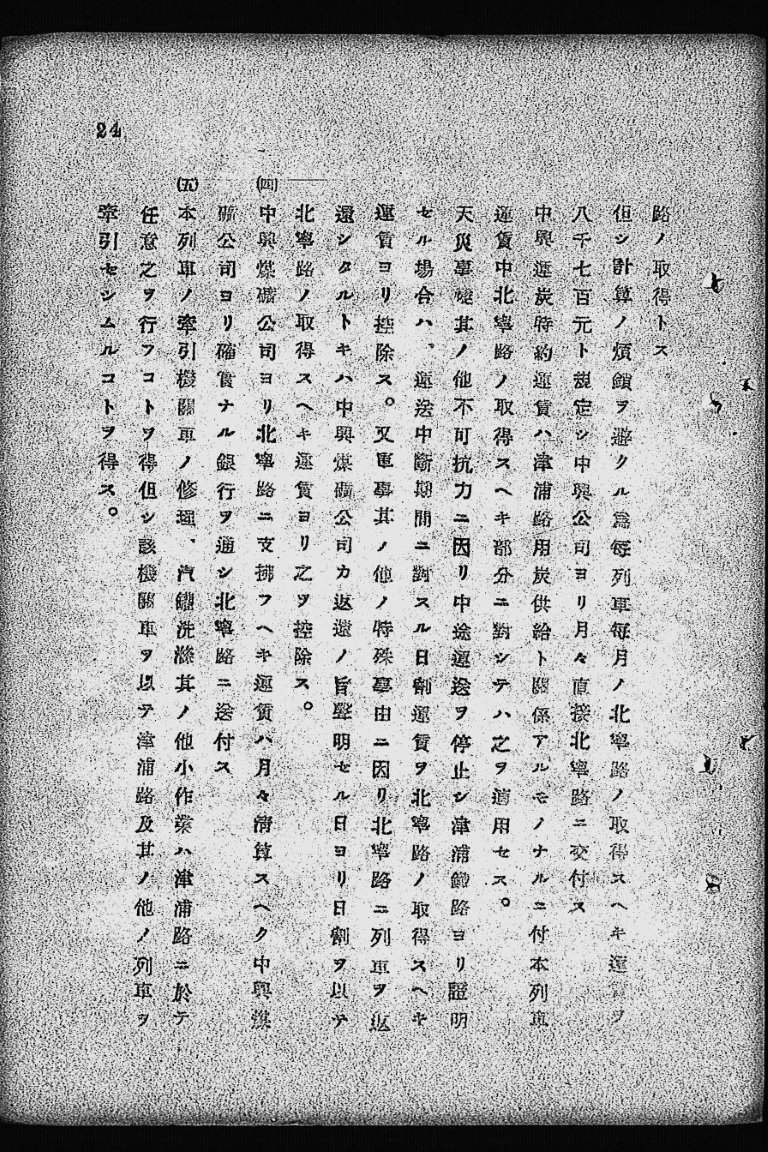 24
路ノ取得トス
但シ計算ノ煩鎖ヲ避クル爲每列車每月ノ北寧路ノ取得スヘキ運賃ヲ
八千七百元ト規定シ中興公司ヨリ月々直接北寧路ニ交付ス
中興運炭特約運賃ハ津浦路用炭供給ト關係アルモノナルニ付本列車
運賃中北寧路ノ取得スヘキ部分ニ對シテハ之ヲ適用セス。
天災事變其ノ他不可抗力ニ因リ中途運送ヲ停止シ津浦鐵路ヨリ證明
セル場合ハ、運送中斷期間ニ對スル日割運賃ヲ北寧路ノ取得スヘキ
運賃ヨリ控除ス。又軍事其ノ他ノ特殊事由ニ因リ北寧路ニ列車ヲ返
還シタルトキハ中興煤礦公司カ返還ノ旨聲明セル日ヨリ日割ヲ以テ
北寧路ノ取得スヘキ運賃ヨリ之ヲ控除ス。
㈣ 中興煤礦公司ヨリ北寧路ニ支拂フヘキ運賃ハ月々淸算スヘク中興煤
礦公司ヨリ確實ナル銀行ヲ通シ北寧路ニ送付ス
㈤ 本列車ノ牽引機關車ノ修理、汽罐洗滌其ノ他小作業ハ津浦路ニ於テ
任意之ヲ行フコトヲ得但シ該機關車ヲ以テ津浦路及其ノ他ノ列車ヲ
牽引セシムルコトヲ得ス。